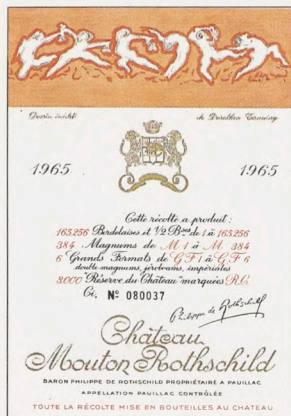 Dessin inédit de Dorothea Tanning
1965 1965
Cette récolte a produit :
165.256 Bordelaises et 1/2 Bses de 1 à 165.256
384 Magnums de M 1 à M 384
6 Grands Formats de G F 1 à G F 6
double magnums, jéroboams, impériales
3000 "Réserve du Château" marquées R.C.
Ci, Nº 080037
Philippe de Rothschild
Château
Mouton Rothschild
BARON PHILIPPE DE ROTHSCHILD PROPRIÉTAIRE A PAUILLAC
APPELLATION PAUILLAC CONTRÔLÉE
TOUTE LA RÉCOLTE MISE EN BOUTEILLES AU CHATEAU